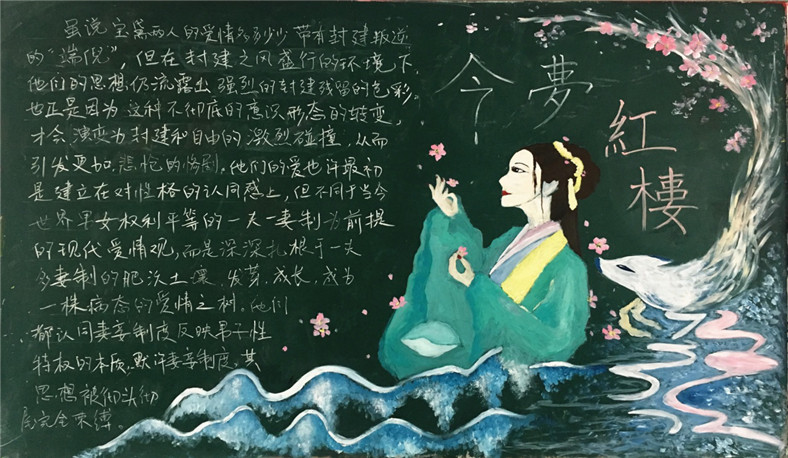 虽说宝黛两人的爱情多多少少带有封建叛逆
的“端倪”，但在封建之风盛行的环境下，
他们的思想仍流露出强烈的封建残留的色彩。
也正是因为这种不彻底的意识形态的转变，
才会演变为封建和自由的激烈碰撞，从而
引发更加悲怆的惨剧。他们的爱也许最初
是建立在对性格的认同感上，但不同于当今
世界男女权利平等的一夫一妻制为前提
的现代爱情观，而是深深扎根于一夫
多妻制的肥沃土壤，发芽，成长，成为
一株病态的爱情之树。他们
都认同妻妾制度反映男子性
特权的本质，默许妻妾制度，其
思想被彻头彻
尾完全束缚。
今夢
紅樓